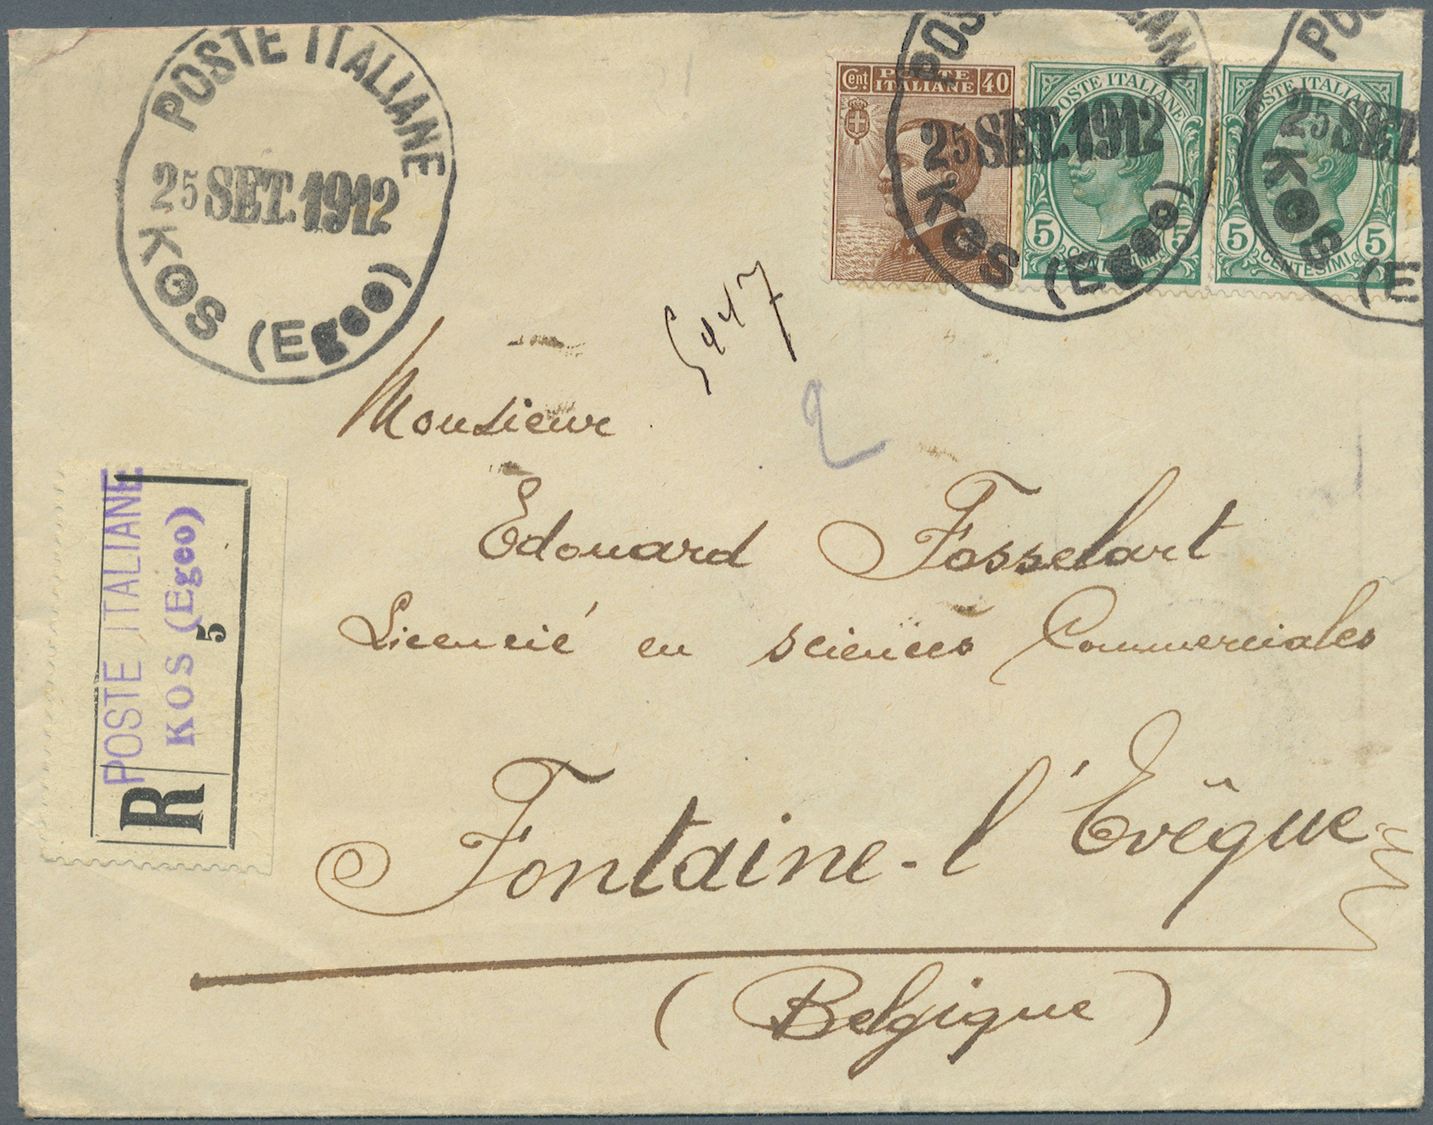 POSTE ITALIANE
25 SET. 1912
KOS (Egeo)
Cent POSTE ITALIANE 40
POSTE ITALIANE
5 CENTESIMI 5
POSTE ITALIANE
5 CENTESIMI 5
POSTE ITALIANE
25 SET. 1912
KOS (Egeo)
PO
25 SET.
KOS (E
Monsieur
2
Edouard Fosselart
Licencié en sciences Commerciales
Fontaine-l'Evêque
(Belgique)
POSTE ITALIANE
KOS (Egeo)
R 5